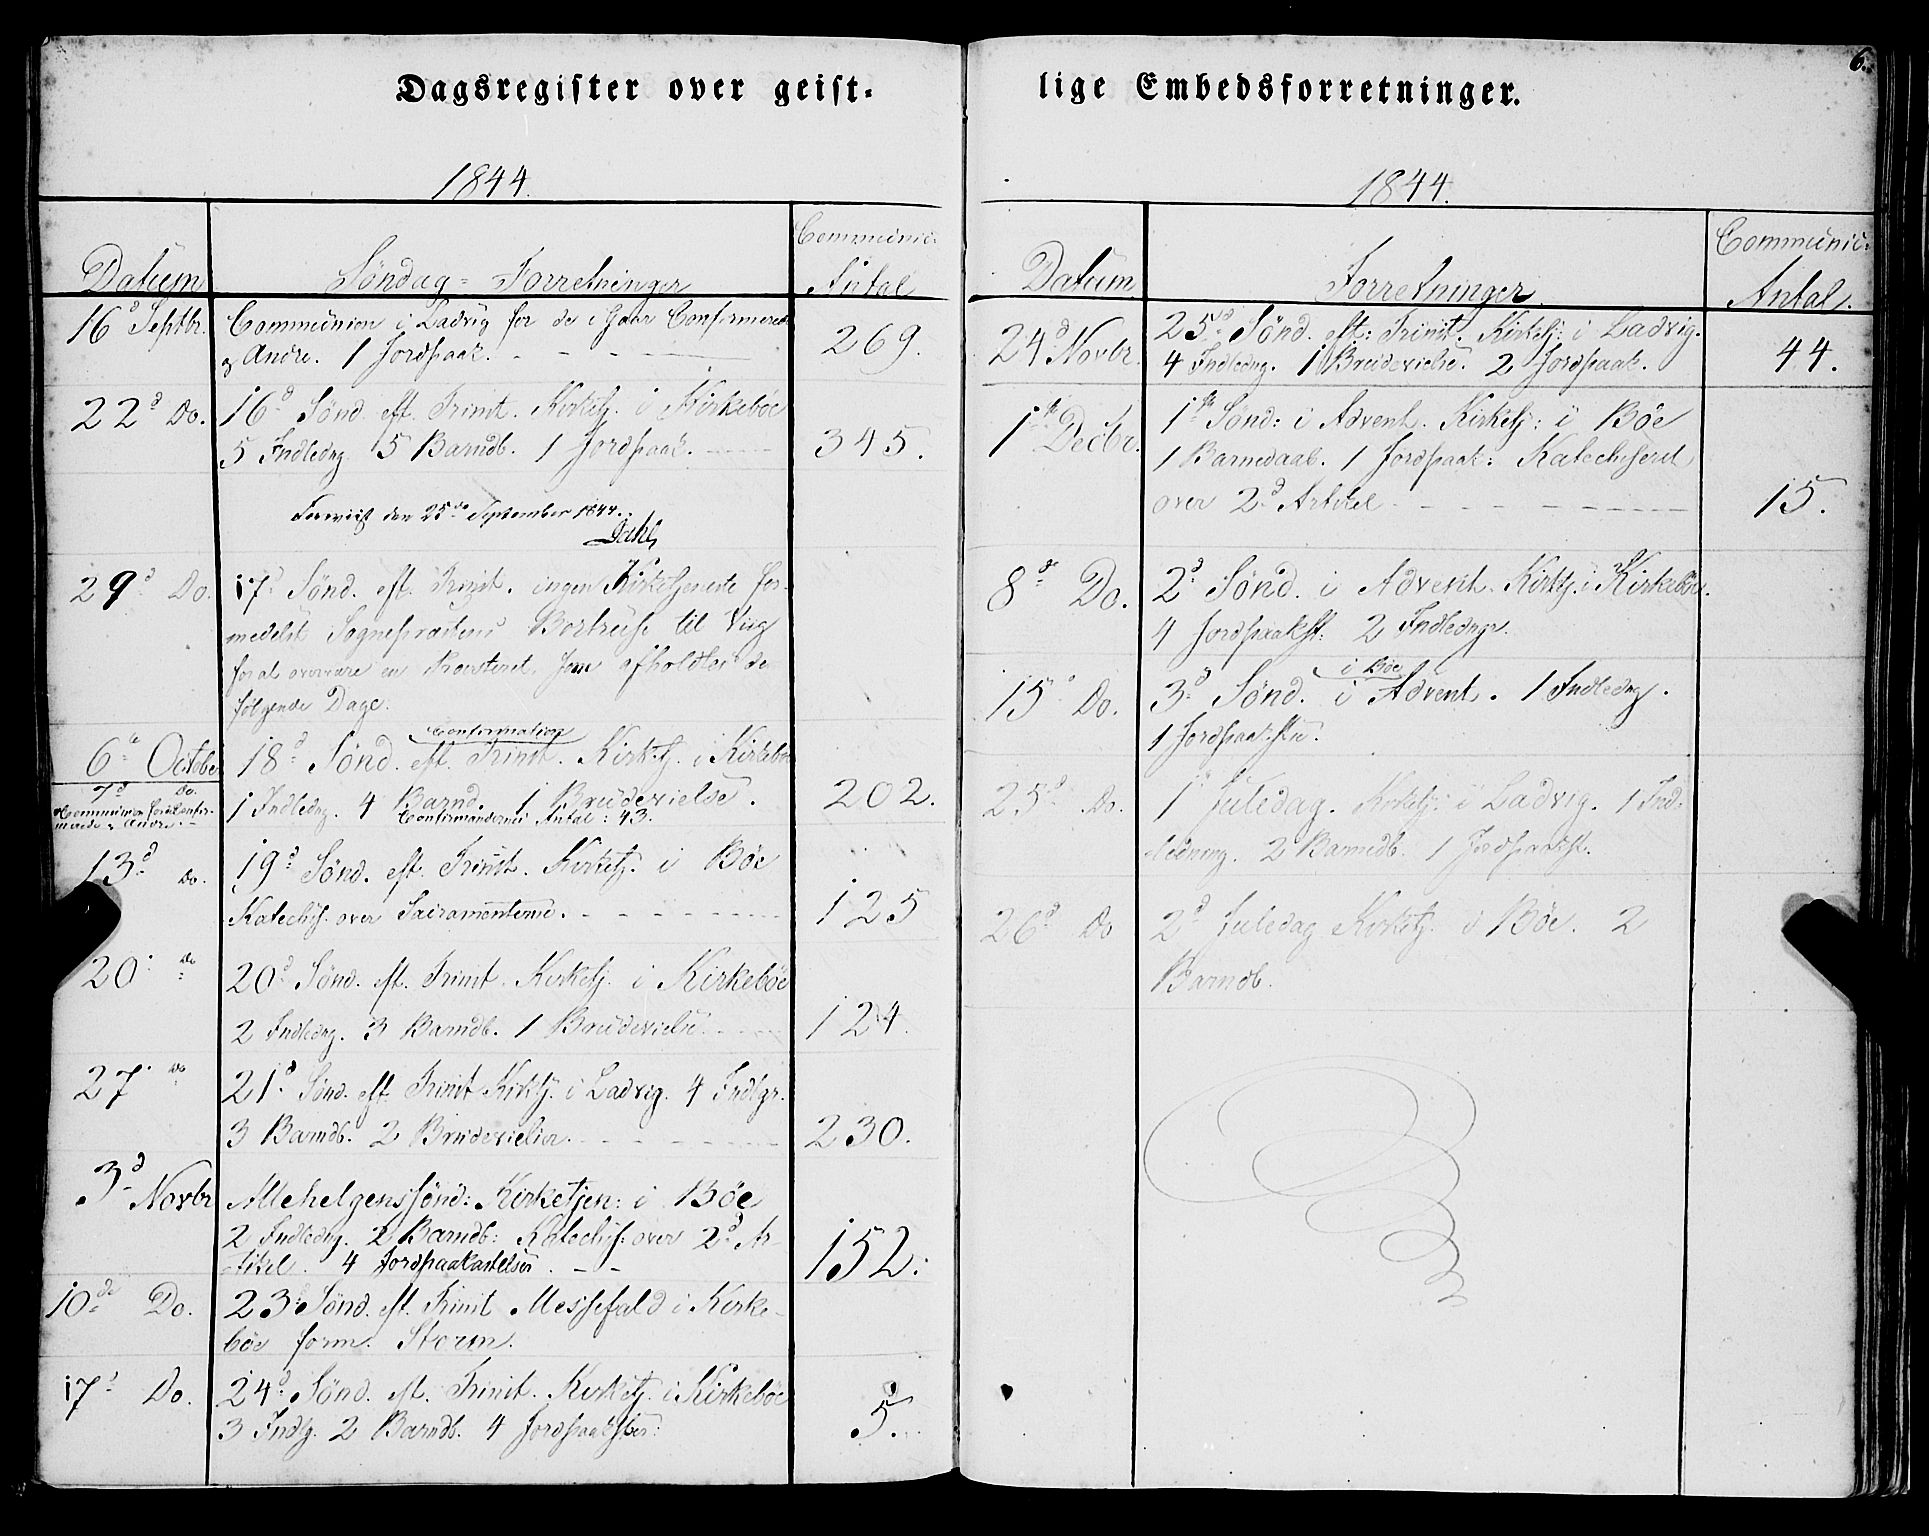 Dagsregister over geist-
1844.
Datum
Søndag = Forretninger
Communic:
Antal
16d Septbr.
Communion i Ladvig for de i Gaar Confirmerede
& Andre. 1 Jordpaak. - - - -
269.
22d Do.
16d Sønd. eft. Trinit. Kirketj. i Kirkebøe
5 Indledng 5 Barndb. 1 Jordpaak. - - -
345.
den 25de September 1844.
Dahl
29d Do.
17d Sønd. eft. Trinit. ingen Kirketjeneste for-
medelst Sognepræstens Bortreise til Viig
for at overvære en Provsteret, som afholdtes de
følgende Dage.
6te October
Confirmation
18d Sønd. eft. Trinit. Kirketj. i Kirkebøe
7d Do.
Communion for de Confir-
merede & Andre. -
1 Indledng. 4 Barnd. 1 Brudevielse.
Confirmandernes Antal: 43.
202.
13d Do.
19d Sønd. eft. Trinit. Kirketj. i Bøe
Katechis. over Sacramenterne. - - - - -
125
20d Do
20d Sønd. eft. Trinit. Kirketj. i Kirkebøe
2 Indledng. 3 Barndb. 1 Brudevielse. - - -
124.
27d Do
21d Sønd. eft. Trinit Kirketj. i Ladvig. 4 Indlgr.
3 Barndb. 2 Brudevielser. - - - - -
230.
3d Novbr
Allehelgenssønd: Kirketjen: i Bøe
2 Indledng. 2 Barndb: Katechis: over 2d Ar-
tikel. 4 Jordpaakastelser. - -
152.
10de Do.
23d Sønd. eft. Trinit Messefald i Kirke-
bøe form. Storm.
17d Do.
24d Sønd. eft. Trinit. Kirketj. i Kirkebøe
3 Indlg. 2 Barndb. 4 Jordpaakster.
5.
6.
lige Embedsforretninger.
1844.
Datum
Forretninger
Communic:
Antal.
24d Novbr.
25d Sønd. eft: Trinit. Kirketj: i Ladvig.
4 Indledng. 1 Brudevielse. 2 Jordpaak.
44.
1ste Decbr.
1ste Sønd: i Advent. Kirketj: i Bøe
1 Barnedaab. 1 Jordpaak: Katechiseret
over 2d Artikel - - - - - -
15.
8de Do.
2d Sønd. i Advent. Kirketj. i Kirkebøe.
4 Jordpaakst: 2 Indledngr.
15d Do.
i Bøe
3d Sønd. i Advent. 1 Indledng.
1 Jordpaakste.
25d Do.
1ste Juledag. Kirketj. i Ladvig. 1 Ind-
ledning. 2 Barnedb. 1 Jordpaakst.
26d Do
2d Juledag Kirketj. i Bøe. 2
Barndb.